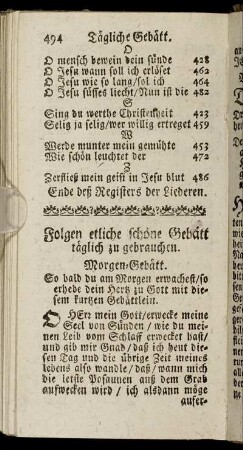 494 Tägliche Gebätt.
O
O mensch bewein dein sünde 428
O Jesu wann soll ich erlöset 462
O Jesu wie so lang/sol ich 464
O Jesu süsses liecht/Nun ist die 482
S
Sing du werthe Christenheit 423
Selig ja selig/wer willig ertreget 459
W
Werde munter mein gemühte 453
Wie schön leuchtet der 472
Z
Zerfließ mein geist in Jesu blut 486
Ende deß Registers der Liederen.
Folgen etliche schöne Gebätt
täglich zu gebrauchen.
Morgen-Gebätt.
So bald du am Morgen erwachest/so
erhebe dein Hertz zu Gott mit die-
sem kurtzen Gebättlein.
O HErr mein Gott/erwecke meine
Seel von Sünden/wie du mei-
nen Leib vom Schlaff erwecket hast/
und gib mir Gnad/daß ich heut die-
sen Tag und die übrige Zeit meines
lebens also wandle/daß/wann mich
die letste Posaunen auß dem Grab
aufwecken wird/ich alsdann möge
aufer-